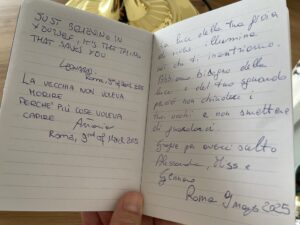 JUST BELIEVING IN
YOURSELF, IT'S THE THING
THAT SAVES YOU
Roma, 9th of March 2025
LA VECCHIA NON VOLEVA
MORIRE
PERCHÉ PIÙ COSE VOLEVA
CAPIRE
Roma, 9rd of March 2025
La luce della tua gioia
di vivere illumina
chi ti incontriamo.
Abbiamo bisogno della
luce e del tuo sguardo
perciò non chiudere i
tuoi occhi e non smettere
di guardarci.
Grazie per averci scelto
Alessandra, Issa e
Gennaro
Roma 9 marzo 2025